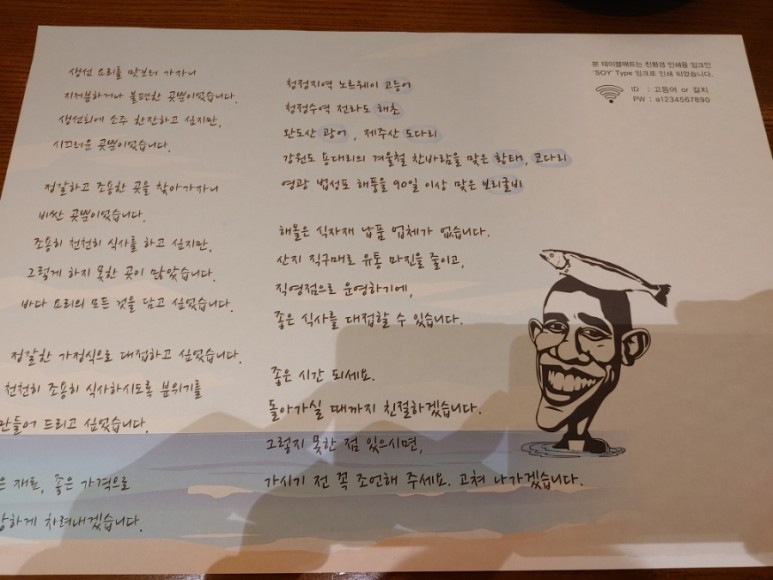 생선 요리를 맛보러 가자니
지저분하거나 불편한 곳뿐이었습니다.
생선회에 소주 한잔하고 싶지만,
시끄러운 곳뿐이었습니다.
정갈하고 조용한 곳을 찾아가자니
비싼 곳뿐이었습니다.
조용히 천천히 식사를 하고 싶지만,
그렇게 하지 못한 곳이 많았습니다.
바다 요리의 모든 것을 담고 싶었습니다.
정갈한 가정식으로 대접하고 싶었습니다.
천천히 조용히 식사하시도록 분위기를
만들어 드리고 싶었습니다.
은 재료, 좋은 가격으로
하게 차려내겠습니다.
청정지역 노르웨이 고등어
청정수역 전라도 해초
완도산 광어, 제주산 도다리
강원도 용대리의 겨울철 찬바람을 맞은 황태, 코다리
영광 법성도 해풍을 90일 이상 맞은 보리굴비
해몰은 식자재 납품 업체가 없습니다.
산지 직구매로 유통 마진을 줄이고,
직영점으로 운영하기에,
좋은 식사를 대접할 수 있습니다.
좋은 시간 되세요.
돌아가실 때까지 친절하겠습니다.
그렇지 못한 점 있으시면,
가시기 전 꼭 조언해 주세요. 고쳐 나가겠습니다.
본 테이블매트는 친환경 인쇄용 잉크인
'SOY' Type 잉크로 인쇄 되었습니다.
ID : 고등어 or 갈치
PW : a1234567890